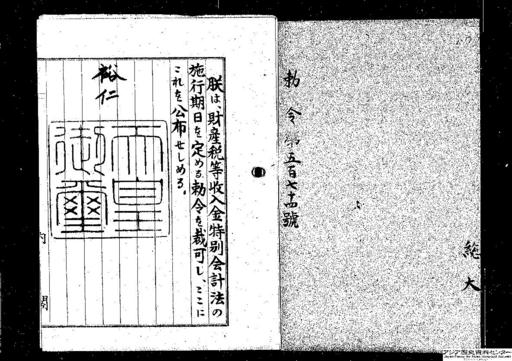 勅令第五百七十四號
朕は、財産税等収入金特別会計法の
施行期日を定める勅令を裁可し、ここに
これを公布せしめる。
裕仁
天皇
御璽
内閣
アジア歴史資料センター